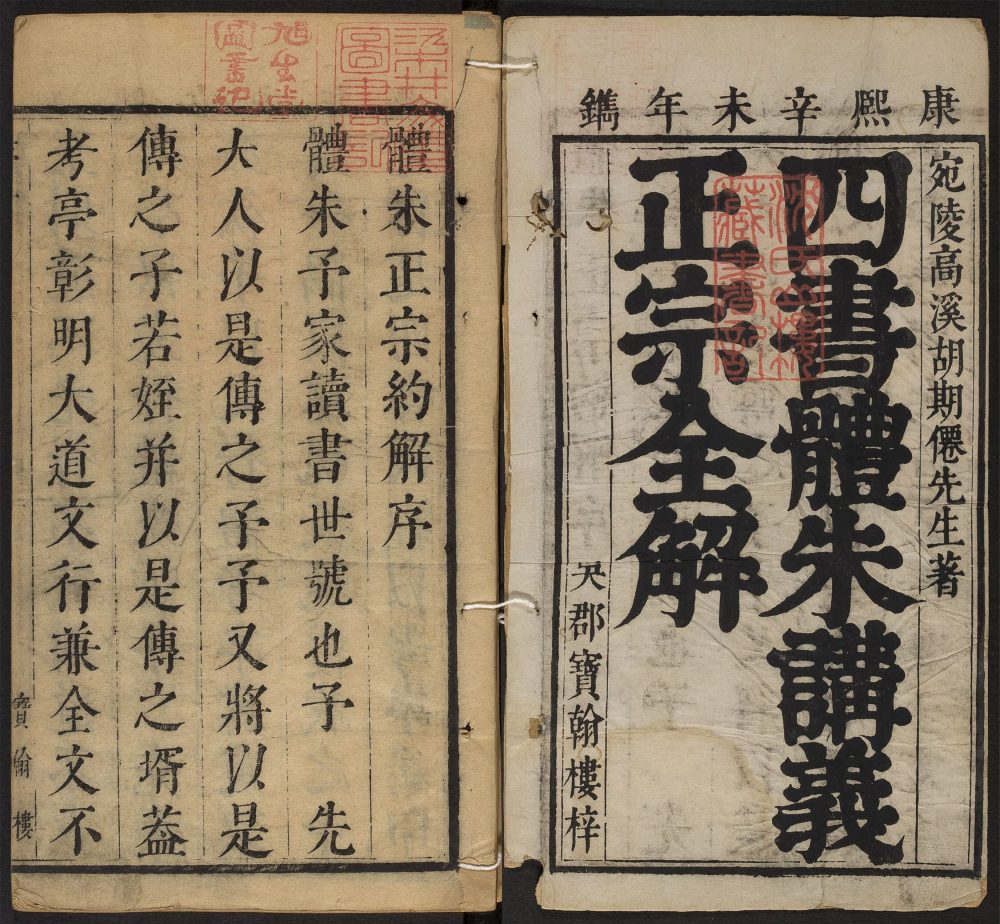 康熙辛未年鐫
宛陵高溪胡期僊先生著
四書體朱講義
正宗全解
吳郡寶翰樓梓
沈氏山樓
藏書記
圖書記
旭生堂
圖書記
體朱正宗約解序
體朱予家讀書世號也予 先
大人以是傳之予予又將以是
傳之子若姪并以是傳之壻葢
考亭彰明大道文行兼全文不
寶翰樓